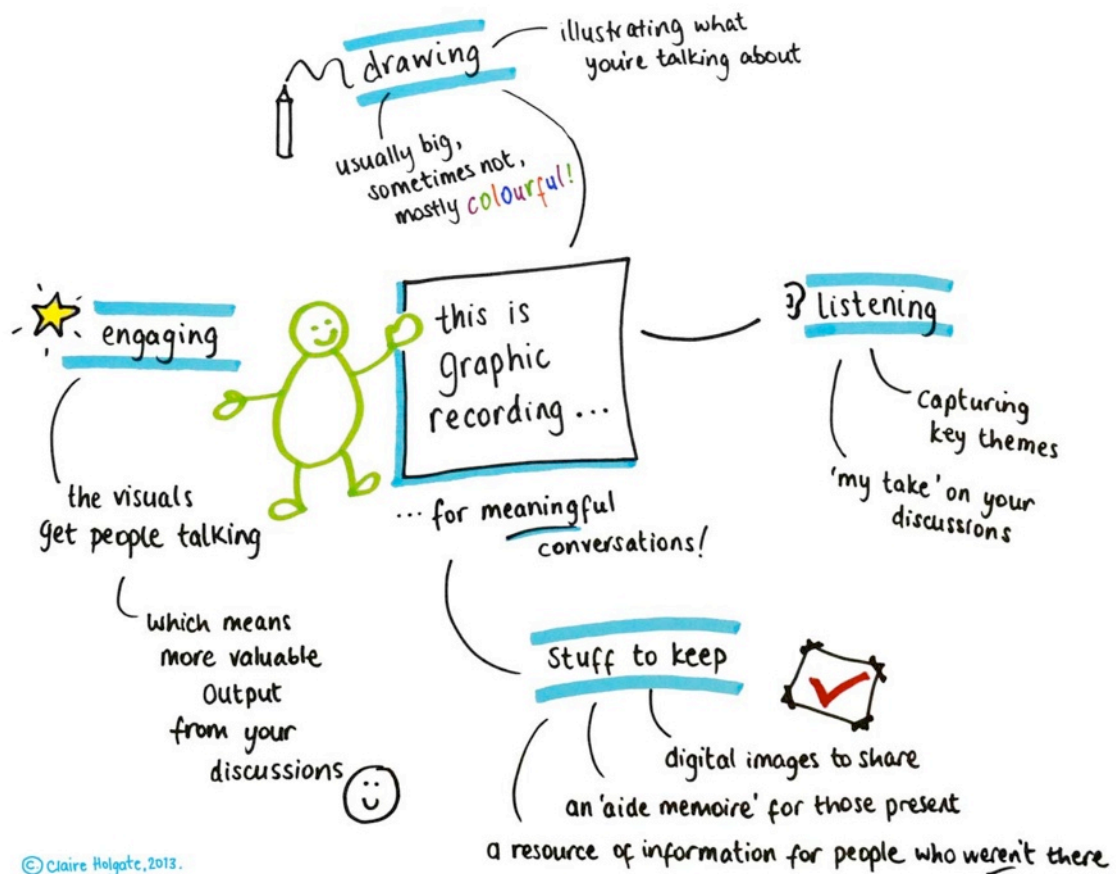 drawing
illustrating what
you're talking about
usually big,
sometimes not,
mostly colourful!
engaging
the visuals
get people talking
which means
more valuable
output
from your
discussions
this is
graphic
recording ...
... for meaningful
conversations!
listening
capturing
key themes
'my take' on your
discussions
stuff to keep
digital images to share
an 'aide memoire' for those present
a resource of information for people who weren't there
© Claire Holgate, 2013.